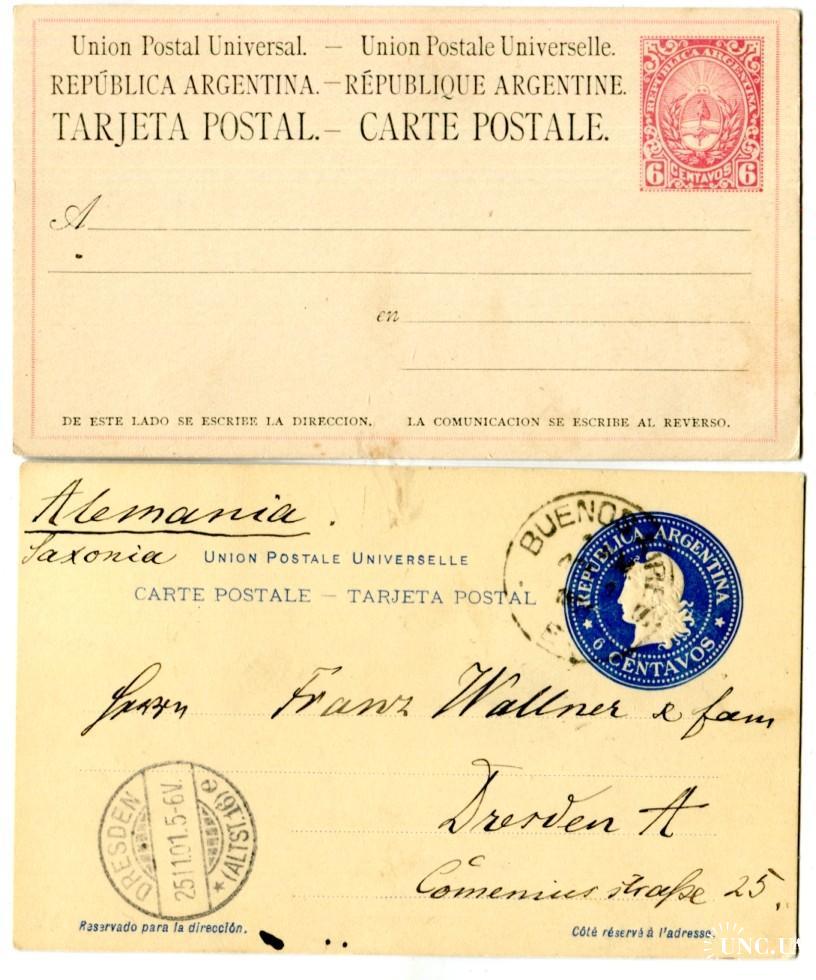 Union Postal Universal. — Union Postale Universelle.
REPÚBLICA ARGENTINA. — RÉPUBLIQUE ARGENTINE.
TARJETA POSTAL. — CARTE POSTALE.
REPUBLICA ARGENTINA
6 CENTAVOS 6
A
en
DE ESTE LADO SE ESCRIBE LA DIRECCION. LA COMUNICACION SE ESCRIBE AL REVERSO.
Alemania.
Saxonia
UNION POSTALE UNIVERSELLE
CARTE POSTALE — TARJETA POSTAL
BUENOS AIRES
REPÚBLICA ARGENTINA
6 CENTAVOS
Herrn Franz Wallner & fam
Dresden A
Comeniusstraße 25.
DRESDEN
25 11 01. 5-6V.
*(ALTST.16) e
Reservado para la dirección. Côté réservé à l'adresse.
UNC.U